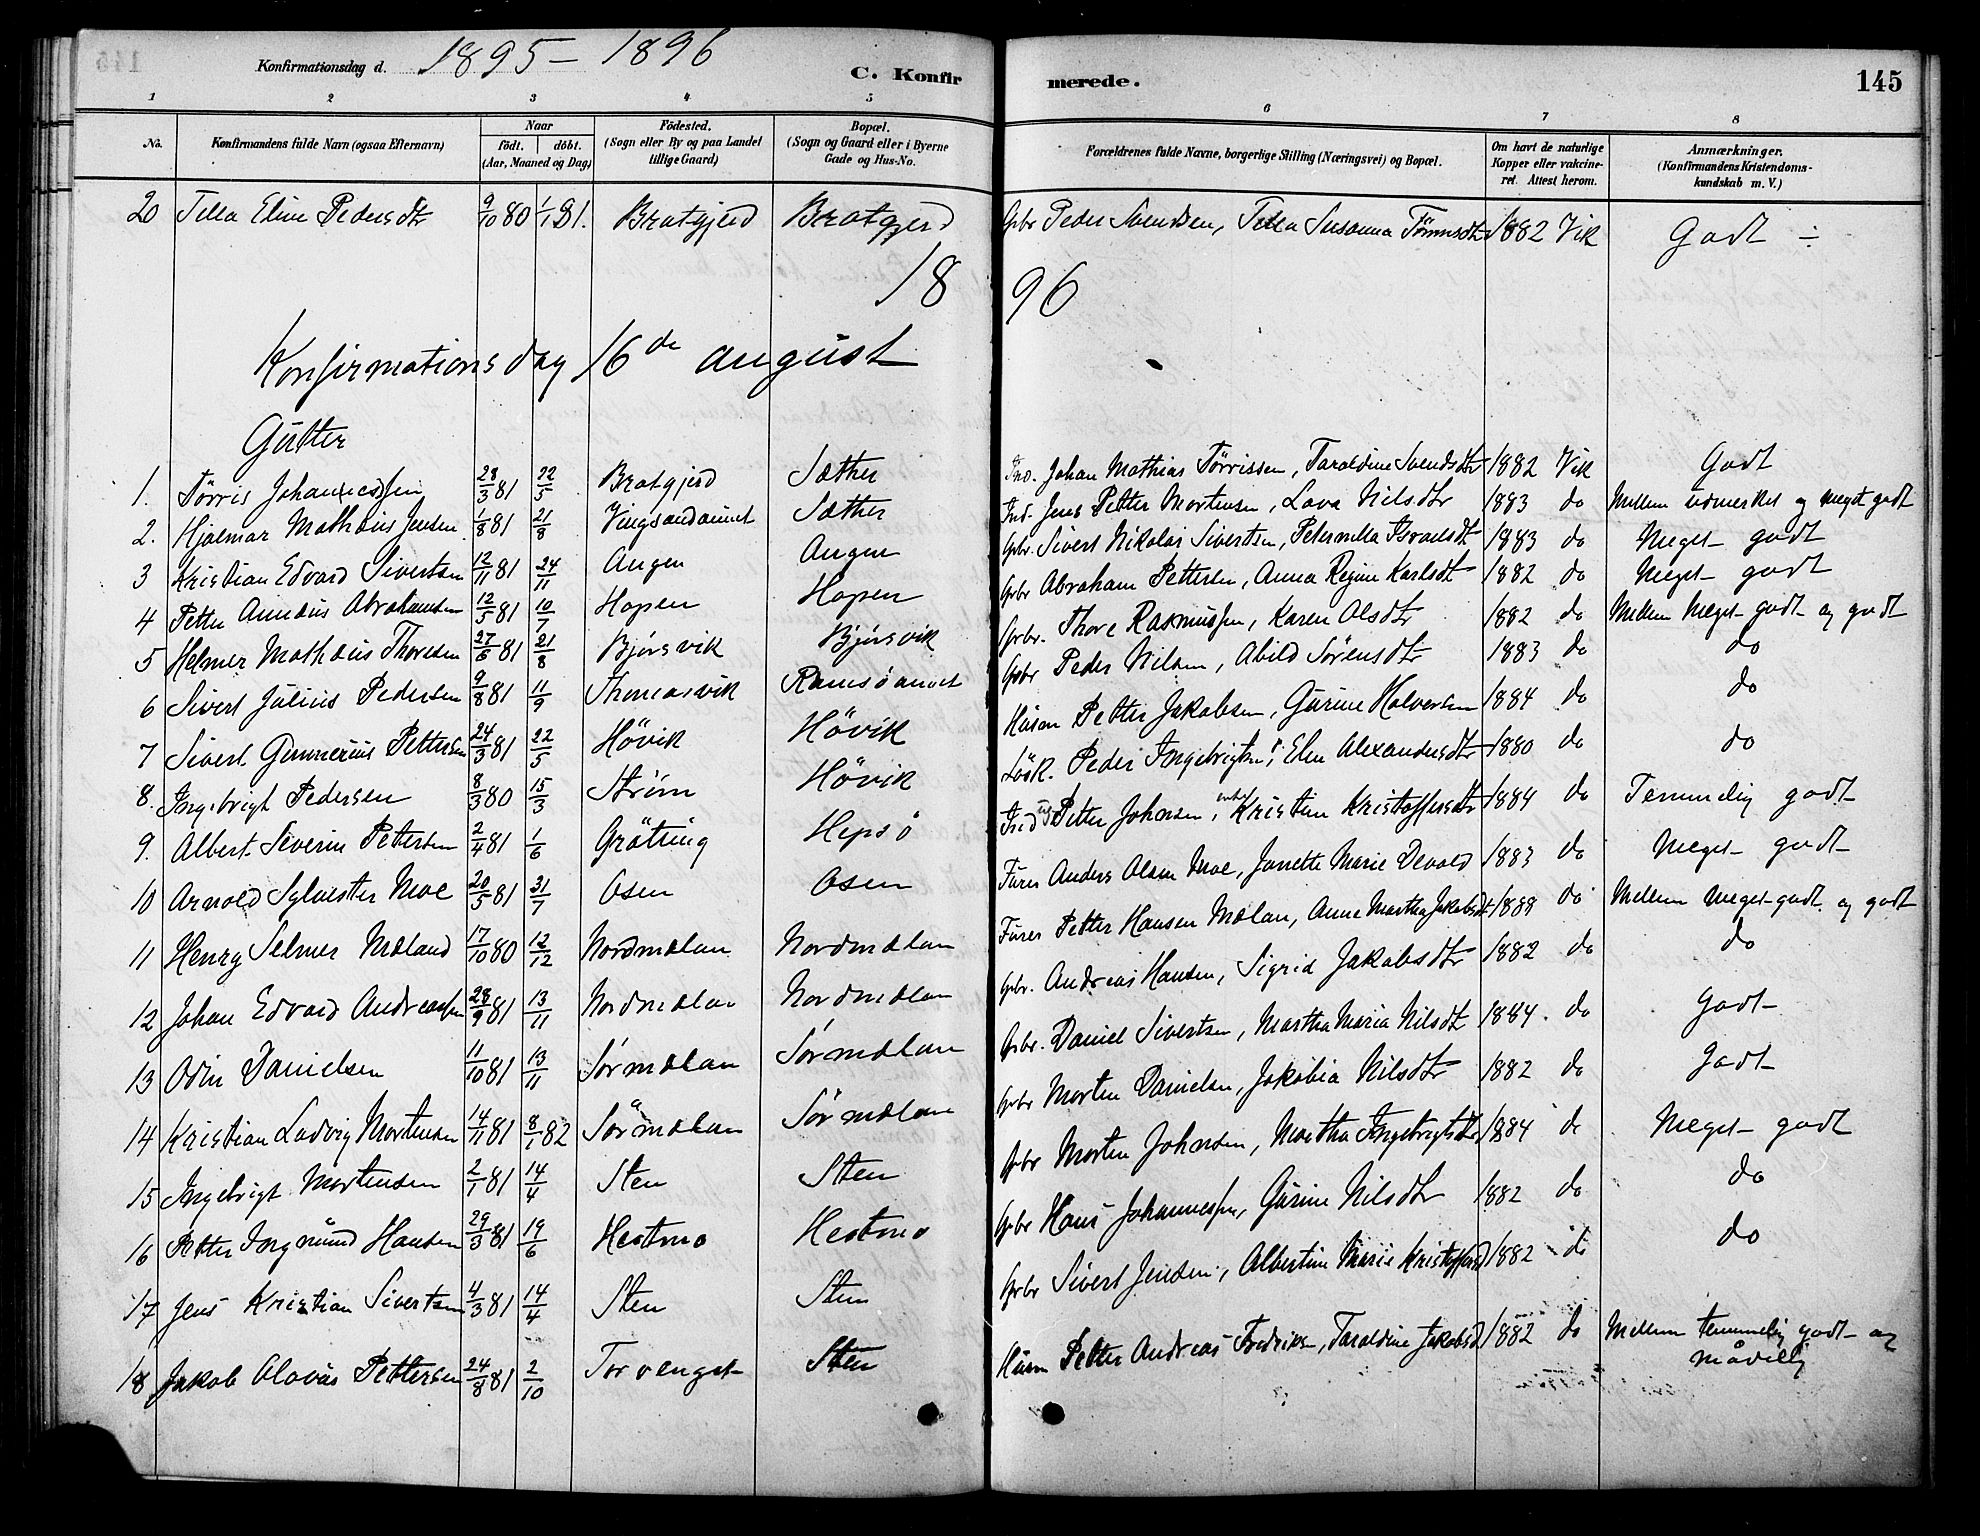 Konfirmationsdag d. 1895 – 1896 C. Konfirmerede. 145
1 2 3 4 5 6 7 8
No. Konfirmandens fulde Navn (ogsaa Efternavn) Naar født. døbt. (Aar, Maaned og Dag) Fødested. (Sogn eller By og paa Landet tillige Gaard) Bopæl. (Sogn og Gaard eller i Byerne Gade og Hus-No. Forældrenes fulde Navne, borgerlige Stilling (Næringsvei) og Bopæl. Om havt de naturlige Kopper eller vakcineret. Attest herom. Anmærkninger. (Konfirmandens Kristendomskundskab m. V.)
20 Tella Eline Pedersdtr 9/10 80 1/1 81. Bratgjerd Bratgjerd Gbr Peder Svendsen, Tella Susanna Tönnesdtr 1882 Vik Godt ÷
1896
Konfirmationsdag 16de august
Gutter
1. Törris Johannessen 28/3 81 22/5 Bratgjerd Sæther Ind. Johan Mathias Törrissen, Taraldine Svendsdtr 1882 Vik Godt
2. Hjalmar Mathæus Jensen 1/8 81 21/8 Vingsandaunet Sæther Ind. Jens Petter Mortensen, Lava Nilsdtr 1883 do Mellem udmerket og meget godt
3 Kristian Edvard Sivertsen 12/11 81 24/11 Angen Angen Gbr. Sivert Nikolai Sivertsen, Peternella Israelsdt 1883 do Meget godt
4 Petter Annæus Abrahamsen 12/5 81 10/7 Hopen Hopen Gbr Abraham Pettersen, Anna Regine Karlsdt 1882 do Meget godt
5 Helmer Mathæus Thoresen 27/6 81 21/8 Bjørsvik Bjørsvik Gbr. Thore Rasmussen, Karen Olsdtr 1882 do Mellem Meget godt og godt
6 Sivert Julius Pedersen 9/8 81 11/9 Thomasvik Ramsöaunet Gbr Peder Nilsen, Abild Sörensdtr 1883 do do
7 Sivert Gunnerius Pettersen 24/3 81 22/5 Hövik Hövik Husm Petter Jakobsen, Gurine Halversen 1884 do do
8. Ingebrigt Pedersen 8/3 80 15/3 Strøm Hövik Lösk. Peder Ingebrigtsen, Elen Alexandersdtr 1880 do do
9. Albert Severin Pettersen 2/4 81 1/6 Gröttring Hepsö Petter Johnsen, Kristine Kristoffersdtr 1884 do Temmelig godt
10 Arnold Sylvester Moe 20/5 81 31/7 Osen Osen Furer Anders Olsen Moe, Janette Marie Devold 1883 do Meget godt
11 Henry Selmer Mæland 17/10 80 12/12 Nordmælan Nordmælan Furer Petter Hansen Mælan, Anne Martha Jakobsdt 1888 do Mellem meget godt og godt
12 Johan Edvard Andreassen 28/9 81 13/11 Nordmælan Nordmælan Gbr. Andreas Hansen, Sigrid Jakobsdtr 1882 do do
13 Odin Danielsen 11/10 81 13/11 Sørmælan Sørmælan Gbr. Daniel Sivertsen, Martha Maria Nilsdt 1884. do Godt
14 Kristian Ludvig Mortensen 14/11 81 8/1 82 Sørmælan Sørmælan Gbr Morten Danielsen, Jakobia Nilsdtr 1882 do Godt
15 Ingebrigt Mortensen 2/1 81 14/4 Sten Sten Gbr Morten Johnsen, Martha Ingebrigtsdtr 1884 do Meget godt
16 Petter Ingmund Hansen 29/3 81 19/6 Hestmo Hestmo Gbr Hans Johannessen, Gurine Nilsdtr 1882 do do
17 Jens Kristian Sivertsen 4/3 81 14/4 Sten Sten Gbr Sivert Jensen, Albertine Marie Kristoffersd 1882 do do
18 Jakob Olavus Pettersen 24/8 81 2/10 Torvenget Sten Husm Petter Andreas Fredriksen, Taraldine Jakobsd 1882 do Mellem temmelig godt og
måd­elig